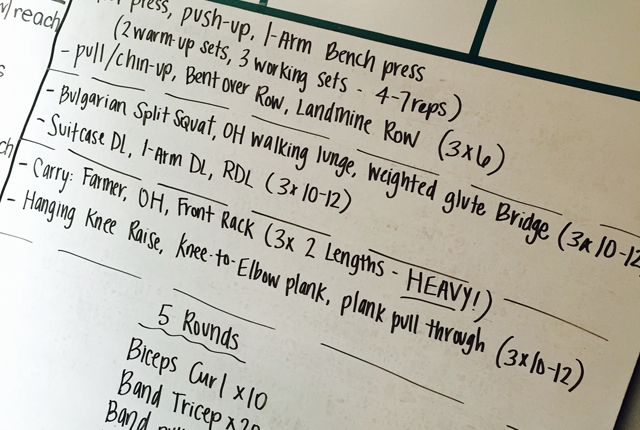 w/reach
press, push-up, 1-Arm Bench press
(2 warm-up sets, 3 working sets - 4-7 reps)
- pull/chin-up, Bent over Row, Landmine Row (3x6)
- Bulgarian Split Squat, OH walking lunge, weighted glute Bridge (3x10-12
- Suitcase DL, 1-Arm DL, RDL (3x10-12)
- Carry: Farmer, OH, Front Rack (3x 2 Lengths - HEAVY!)
- Hanging Knee Raise, Knee-to-Elbow plank, plank pull through (3x10-12)
5 Rounds
Biceps Curl x10
Band Tricep x20
Band